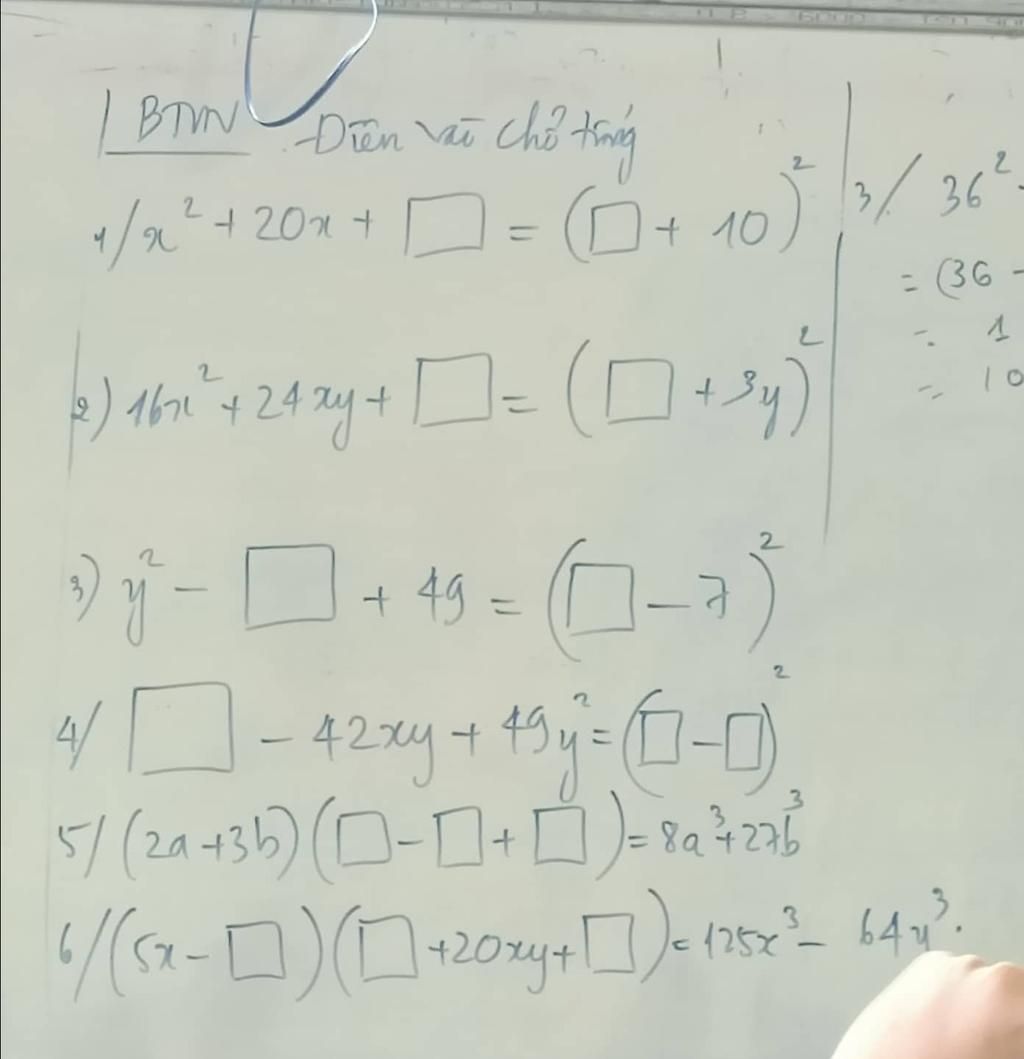 BTVN Điền vào chỗ trống
1/ x² + 20x + □ = (□ + 10)²
2) 16x² + 24xy + □ = (□ + 3y)²
3) y² - □ + 49 = (□ - 7)²
4/ □ - 42xy + 49y² = (□ - □)²
5/ (2a + 3b)(□ - □ + □) = 8a³ + 27b³
6/ (5x - □)(□ + 20xy + □) = 125x³ - 64y³.
3/ 36² -
= (36 -
= 1
= 10